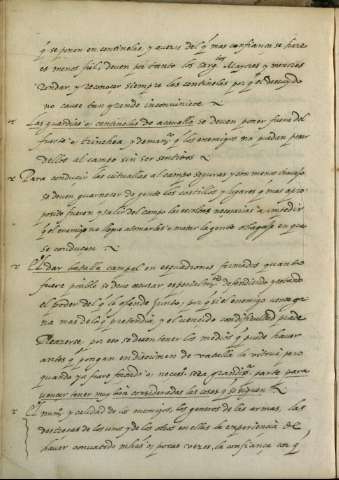 q̃ se ponen en centinela, y a veces del q̃ mas confianza se haze
es menos fiel, deven por tanto los Mayores y menores
Rondar, y reconocer siempre las centinelas por q̃ el descuydo
no cause tan grande inconviniente
Las guardias o centinelas de acavallo se deven poner fuera del
fuerte o trinchea, y de man.ª q̃ los enemigos no puedan
al campo sin ser sentidos
Para conducir las vituallas al campo seguras y con menos travajo
se deven guarnecer de gente los castillos y lugares q̃ mas apro
posito fueren y salir del campo las necesarias a impedir
q̃ el enemigo no llegue a tomarlas o matar la gente en que
se conducen
El dar batalla campal en esquadrones formados quanto
fuere posible se deve escusar defendiendo
el poder del q̃ la ofende junto, por q̃ si el enemigo
na mas de lo q̃ pretendia, y el vencido con dificultad puede
Rehazerse, por eso se deven tener los medios q̃ puede haver
antes q̃ pongan en de batalla la victoria pero
quando ya fuere forzoso o necesº sera parte para
vencer tener muy bien consideradas las cosas q̃ se siguen
El numº y calidad de los enemigos, los generos de las armas, las
destrezas de los unos y de los otros en ellas la experiencia de
haver conbatido muchas o pocas vezes, la confianza con q̃